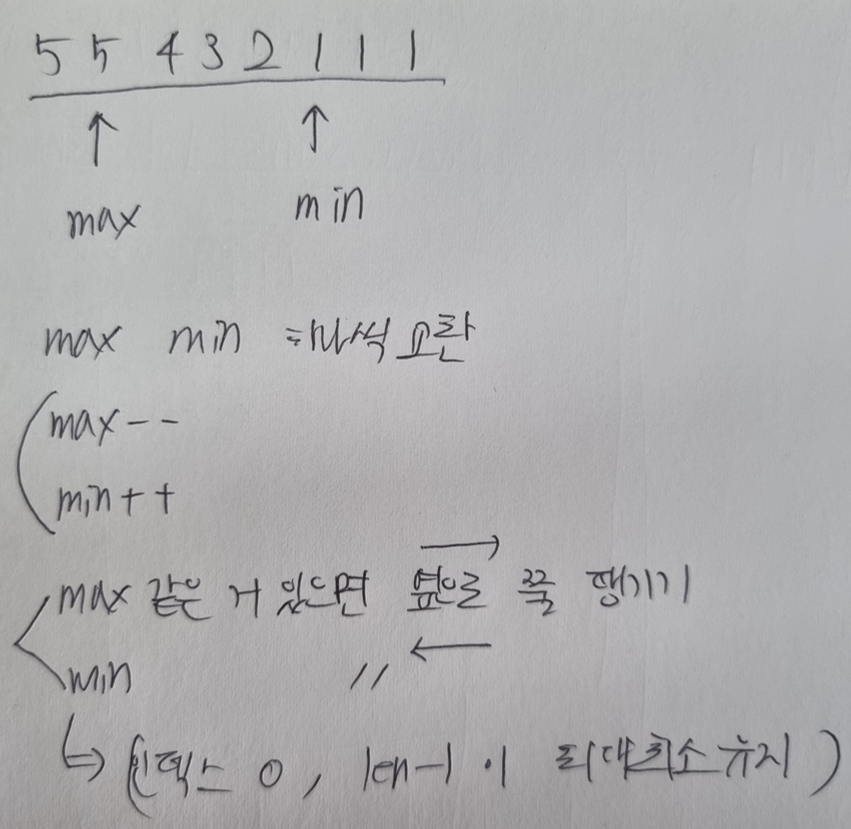 5 5 4 3 2 1 1 1
↑ ↑
max min
max min 하나씩 교환
max--
min++
max 같은 거 있으면 옆으로 쭉 땡기기
min 〃
↳ (인덱스 0, len-1 이 최대최소 유지)